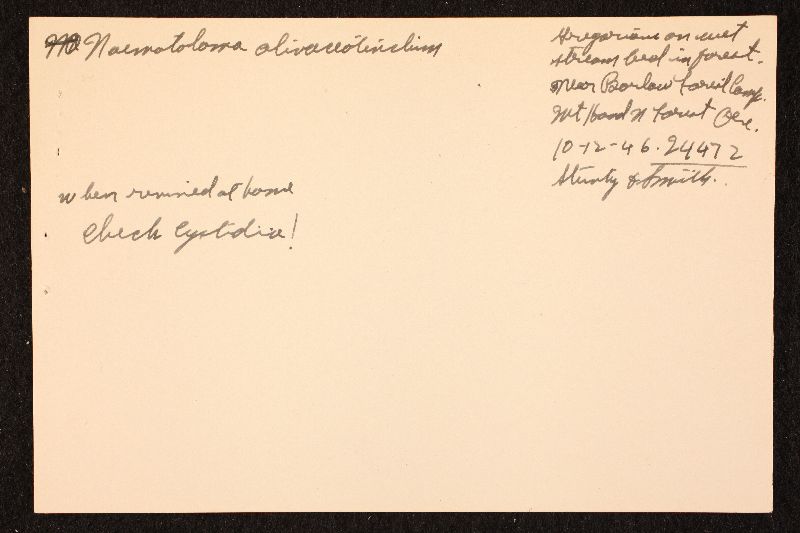 Naematoloma olivaceotinctum
Gregarious on wet
stream bed in forest.
Near Barlow Forest Camp.
Mt Hood N Forest Ore.
10-12-46. 24472
& Smith.
when revived at home
Check Cystidia!